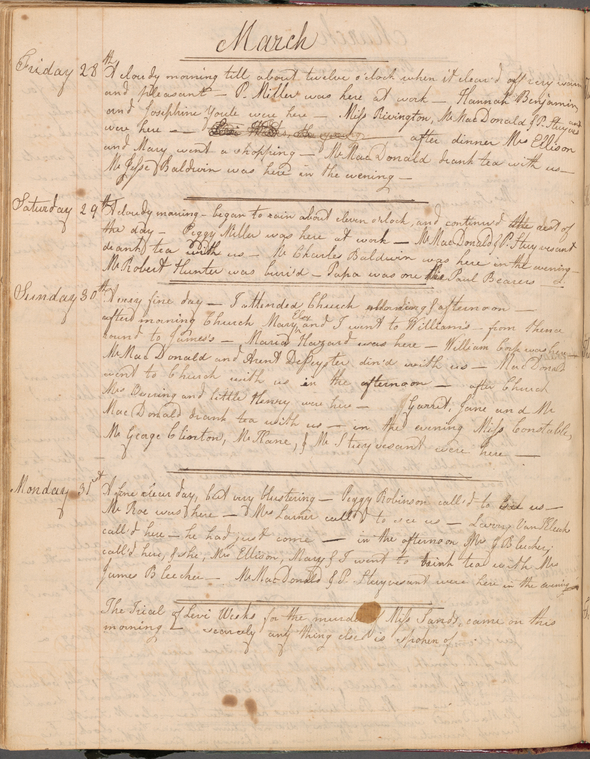 March
Friday 28th A cloudy morning till about twelve o'clock when it clear'd off very warm
and pleasant — P. Miller was here at work — Hannah Benjamin and
and Josephine Youle were here — Miss Rivington, Mr MacDonald & P. Stuyvesant
were here — after dinner Mrs Ellison
and Mary went a shopping — Mr MacDonald drank tea with us —
Mr Jesse Baldwin was here in the evening —
Saturday 29th A cloudy morning — began to rain about eleven o'clock, and continued the rest of
the day — Peggy Miller was here at work — Mr MacDonald & P. Stuyvesant
drank tea with us — Mr Charles Baldwin was here in the evening —
Mr Robert Hunter was buri'd — Papa was one the Paul Bearers —
Sunday 30th A very fine day — I attended Church morning & afternoon —
after morning Church Mary, and I went to William's — from thence
round to James's — Maria Hazard was here — William Cnp was here —
Mr MacDonald and Arent DePeyster din'd with us — MacDonald
went to Church with us in the afternoon — after Church
Mrs Deering and little Henry were here — Garrit, Jane and Mr
MacDonald drank tea with us — in the evening Miss Constable,
Mr George Clinton, Mr Kane, & Mr Stuyvesant were here —
Monday 31st A fine clear day, but very blustering — Peggy Robinson call'd to see us —
Mr Roe was here — Mrs Larner call'd to see us — Levinus VanBleeck
call'd here — he had just come — in the afternoon Mrs J Bleecker
call'd here, & she, Mrs Ellison, Mary & I went to drink tea with Mrs
James Bleecker — Mr MacDonald & P. Stuyvesant were here in the evening
The Trial of Levi Weeks for the murder Miss Sands, came on this
morning — scarcely any thing else is spoken of